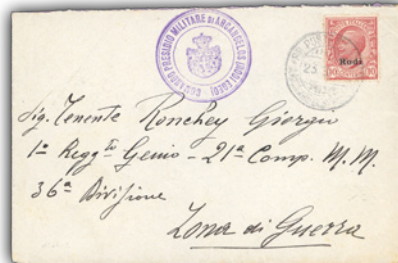 COMANDO PRESIDIO MILITARE DI ARCANGELOS (RODI EGEO)
Rodi
10 10
23
Sig. Tenente Ronchey Giorgio
1º Regg.to Genio - 21ª Comp. M. M.
36ª Divisione
Zona di Guerra